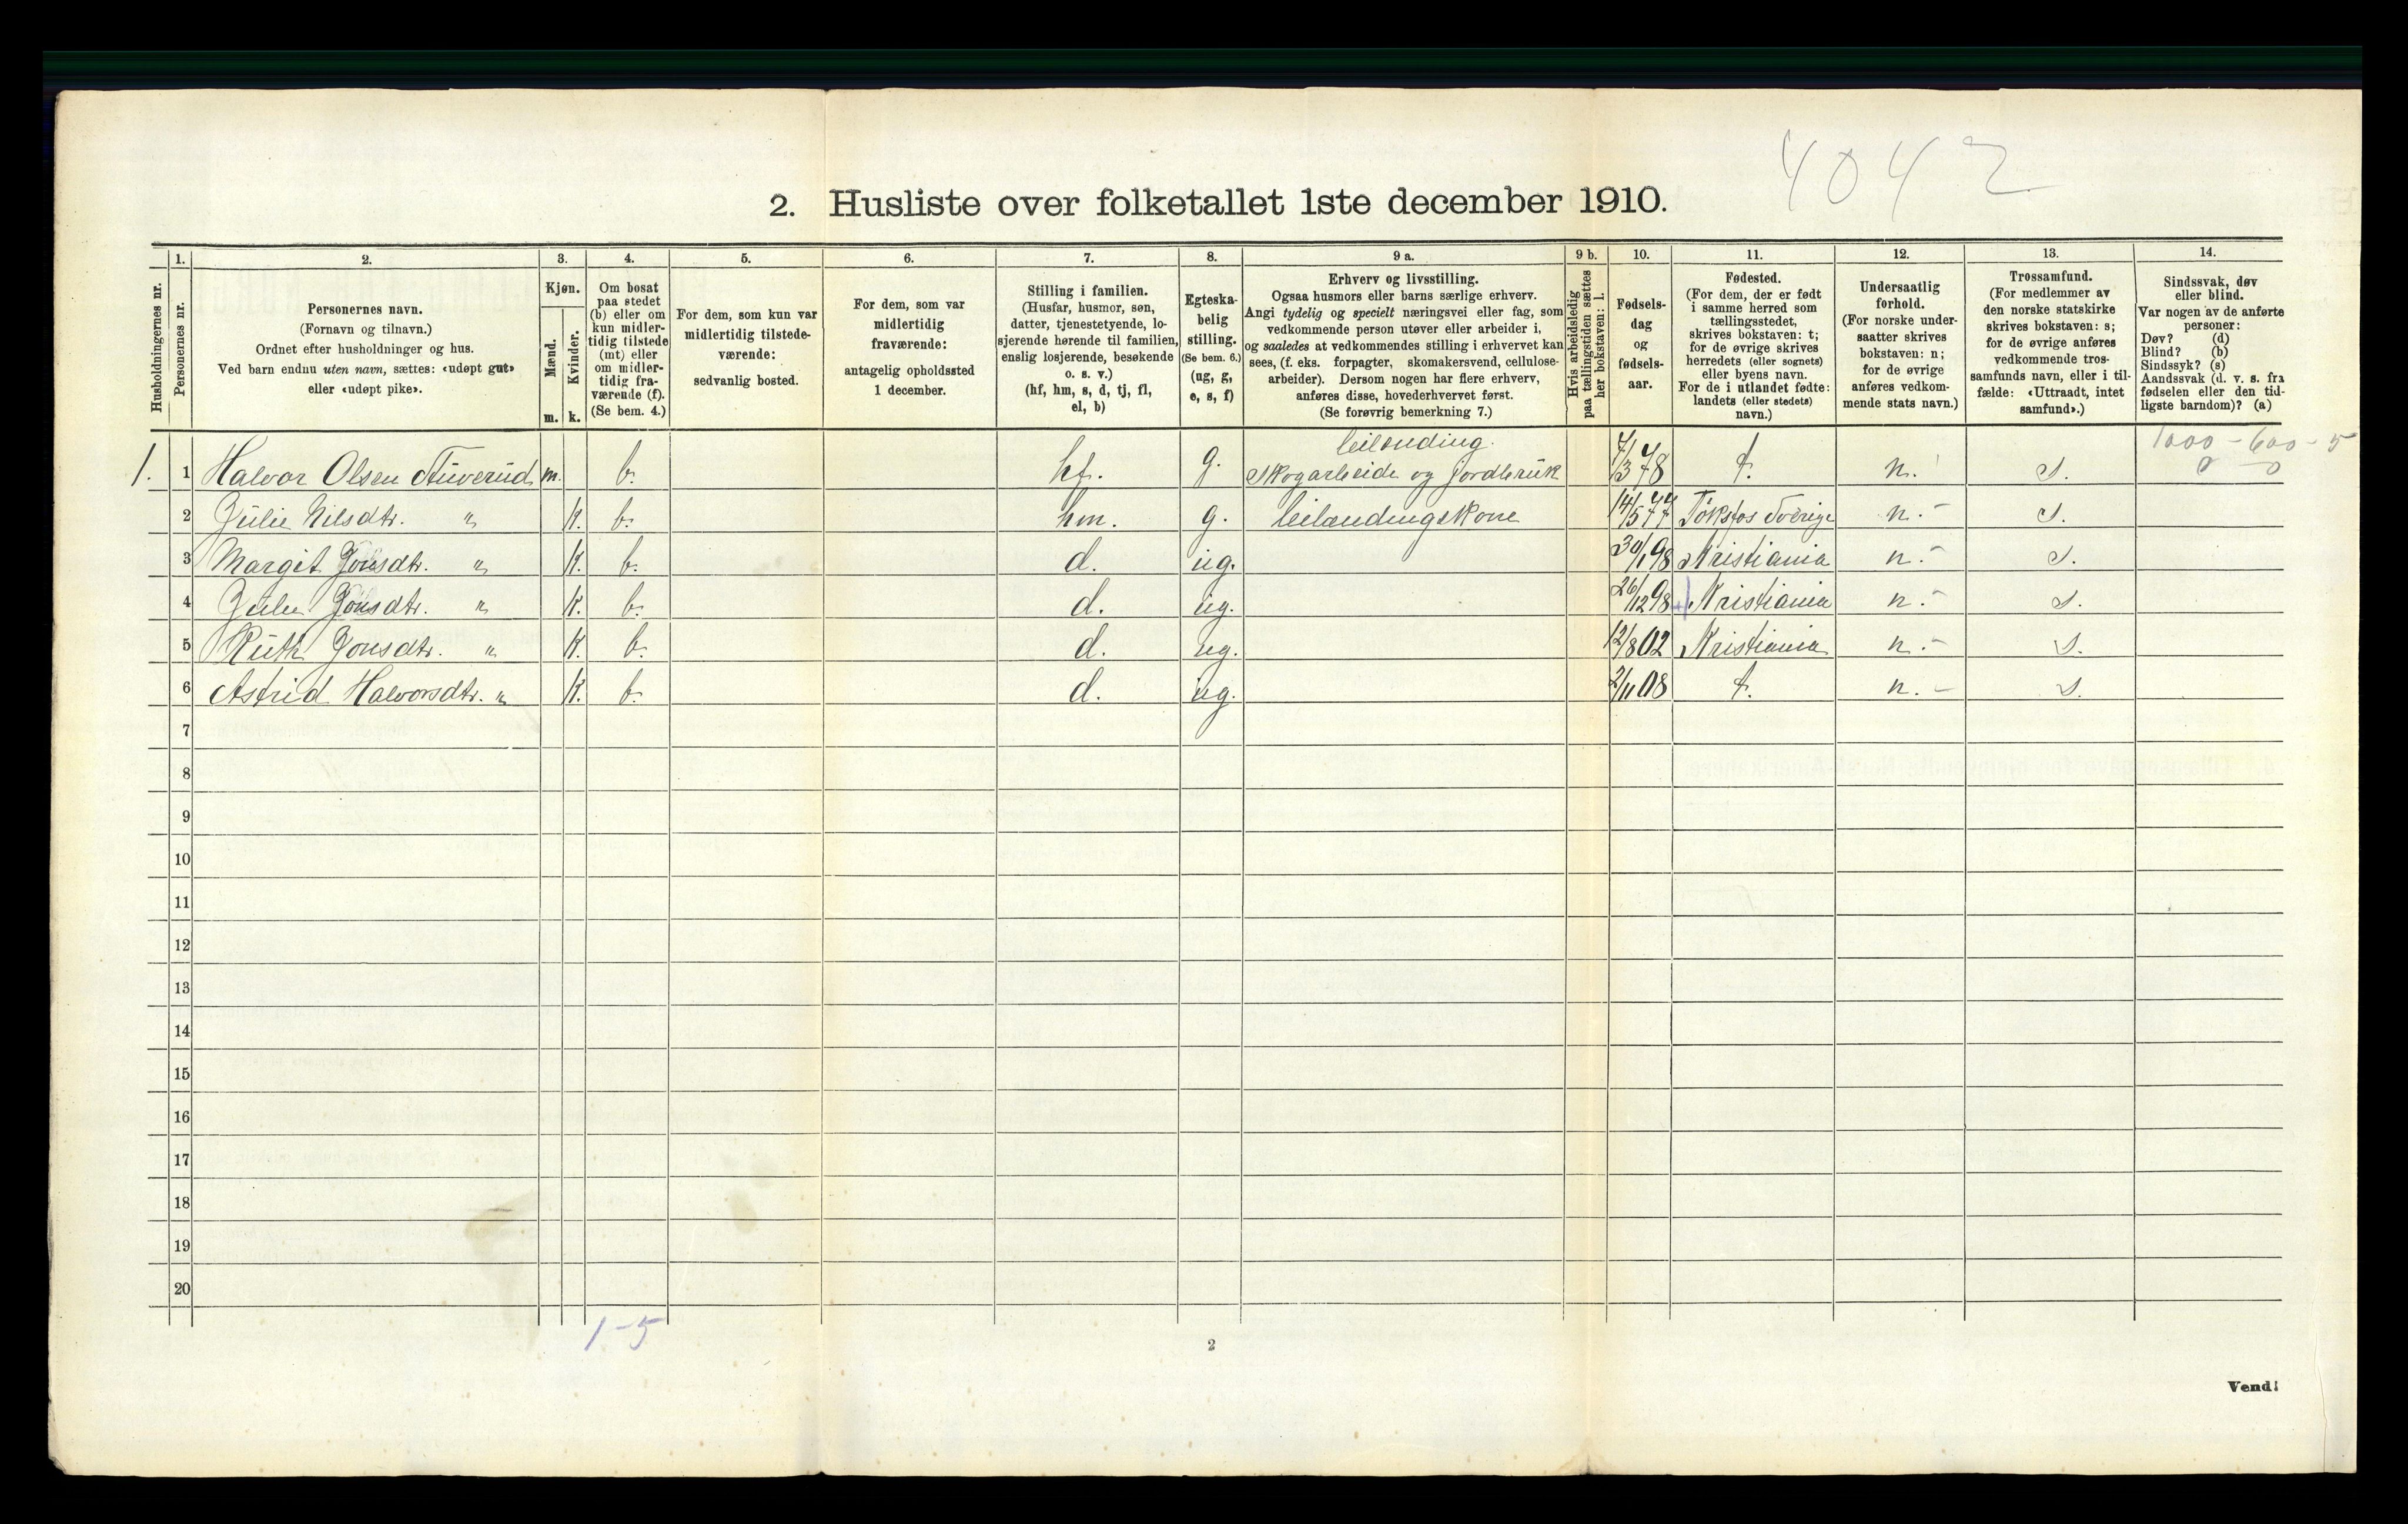 4042
2. Husliste over folketallet 1ste december 1910.
Husholdningernes nr.
1.
Personernes nr.
2.
Personernes navn.
(Fornavn og tilnavn.)
Ordnet efter husholdninger og hus.
Ved barn endnu uten navn, sættes: «udøpt gut»
eller «udøpt pike».
3.
Kjøn.
Mænd.
m.
Kvinder.
k.
4.
Om bosat
paa stedet
(b) eller om
kun midler-
tidig tilstede
(mt) eller
om midler-
tidig fra-
værende (f).
(Se bem. 4.)
5.
For dem, som kun var
midlertidig tilstede-
værende:
sedvanlig bosted.
6.
For dem, som var
midlertidig
fraværende:
antagelig opholdssted
1 december.
7.
Stilling i familien.
(Husfar, husmor, søn,
datter, tjenestetyende, lo-
sjerende hørende til familien,
enslig losjerende, besøkende
o. s. v.)
(hf, hm, s, d, tj, fl,
el, b)
8.
Egteska-
belig
stilling.
(Se bem. 6.)
(ug, g,
e, s, f)
9 a.
Erhverv og livsstilling.
Ogsaa husmors eller barns særlige erhverv.
Angi tydelig og specielt næringsvei eller fag, som
vedkommende person utøver eller arbeider i,
og saaledes at vedkommendes stilling i erhvervet kan
sees, (f. eks. forpagter, skomakersvend, cellulose-
arbeider). Dersom nogen har flere erhverv,
anføres disse, hovederhvervet først.
(Se forøvrig bemerkning 7.)
9 b.
Hvis arbeidsledig
paa tællingstiden sættes
her bokstaven: l.
10.
Fødsels-
dag
og
fødsels-
aar.
11.
Fødested.
(For dem, der er født
i samme herred som
tællingsstedet,
skrives bokstaven: t;
for de øvrige skrives
herredets (eller sognets)
eller byens navn.
For de i utlandet fødte:
landets (eller stedets)
navn.)
12.
Undersaatlig
forhold.
(For norske under-
saatter skrives
bokstaven: n;
for de øvrige
anføres vedkom-
mende stats navn.)
13.
Trossamfund.
(For medlemmer av
den norske statskirke
skrives bokstaven: s;
for de øvrige anføres
vedkommende tros-
samfunds navn, eller i til-
fælde: «Uttraadt, intet
samfund».)
14.
Sindssvak, døv
eller blind.
Var nogen av de anførte
personer:
Døv? (d)
Blind? (b)
Sindssyk? (s)
Aandssvak (d. v. s. fra
fødselen eller den tid-
ligste barndom)? (a)
leilending. 1000 - 600 - 5
1. 1 Halvor Olsen m. b. hf. g. Skogarbeide og jordbruk 4/3 78 t. n. s. 0 0
2 Julie Nilsdtr. " K. b. hm. g. leilendingskone 14/5 77 Töksfos Sverige n. - s.
3 Margit Jonsdtr. " K. b. d. ug. 30/1 98 Kristiania n. - s.
4 Julie Jonsdtr. " K. b. d. ug. 26/12 98 Kristiania n. - s.
5 Ruth Jonsdtr. " K. b. d. ug. 12/8 02 Kristiania n. - s.
6 Astrid Halvorsdtr. " K. b. d. ug. 2/11 08 t. n. - s.
7
8
9
10
11
12
13
14
15
16
17
18
19
20
1-5
2
Vend!